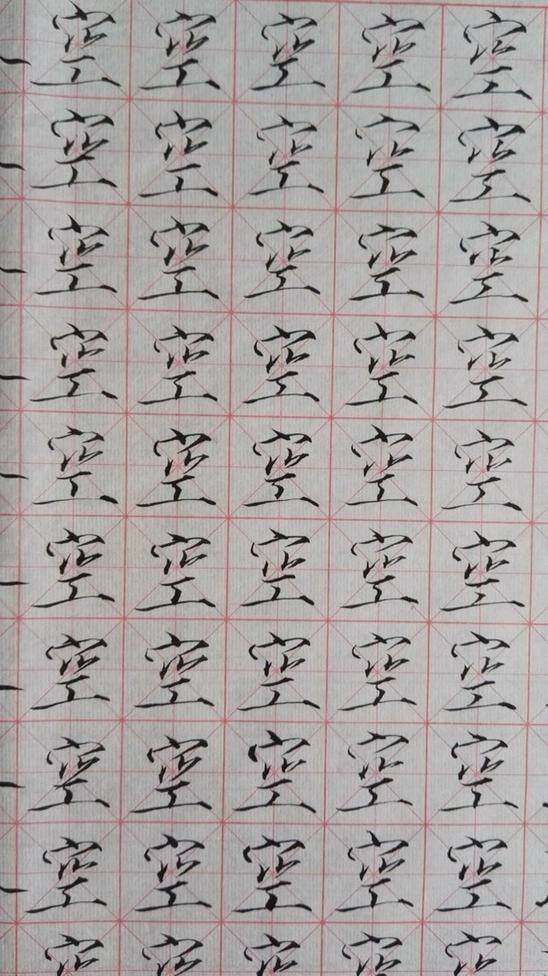 空空空空空
空空空空空
空空空空空
空空空空空
空空空空空
空空空空空
空空空空空
空空空空空
空空空空空